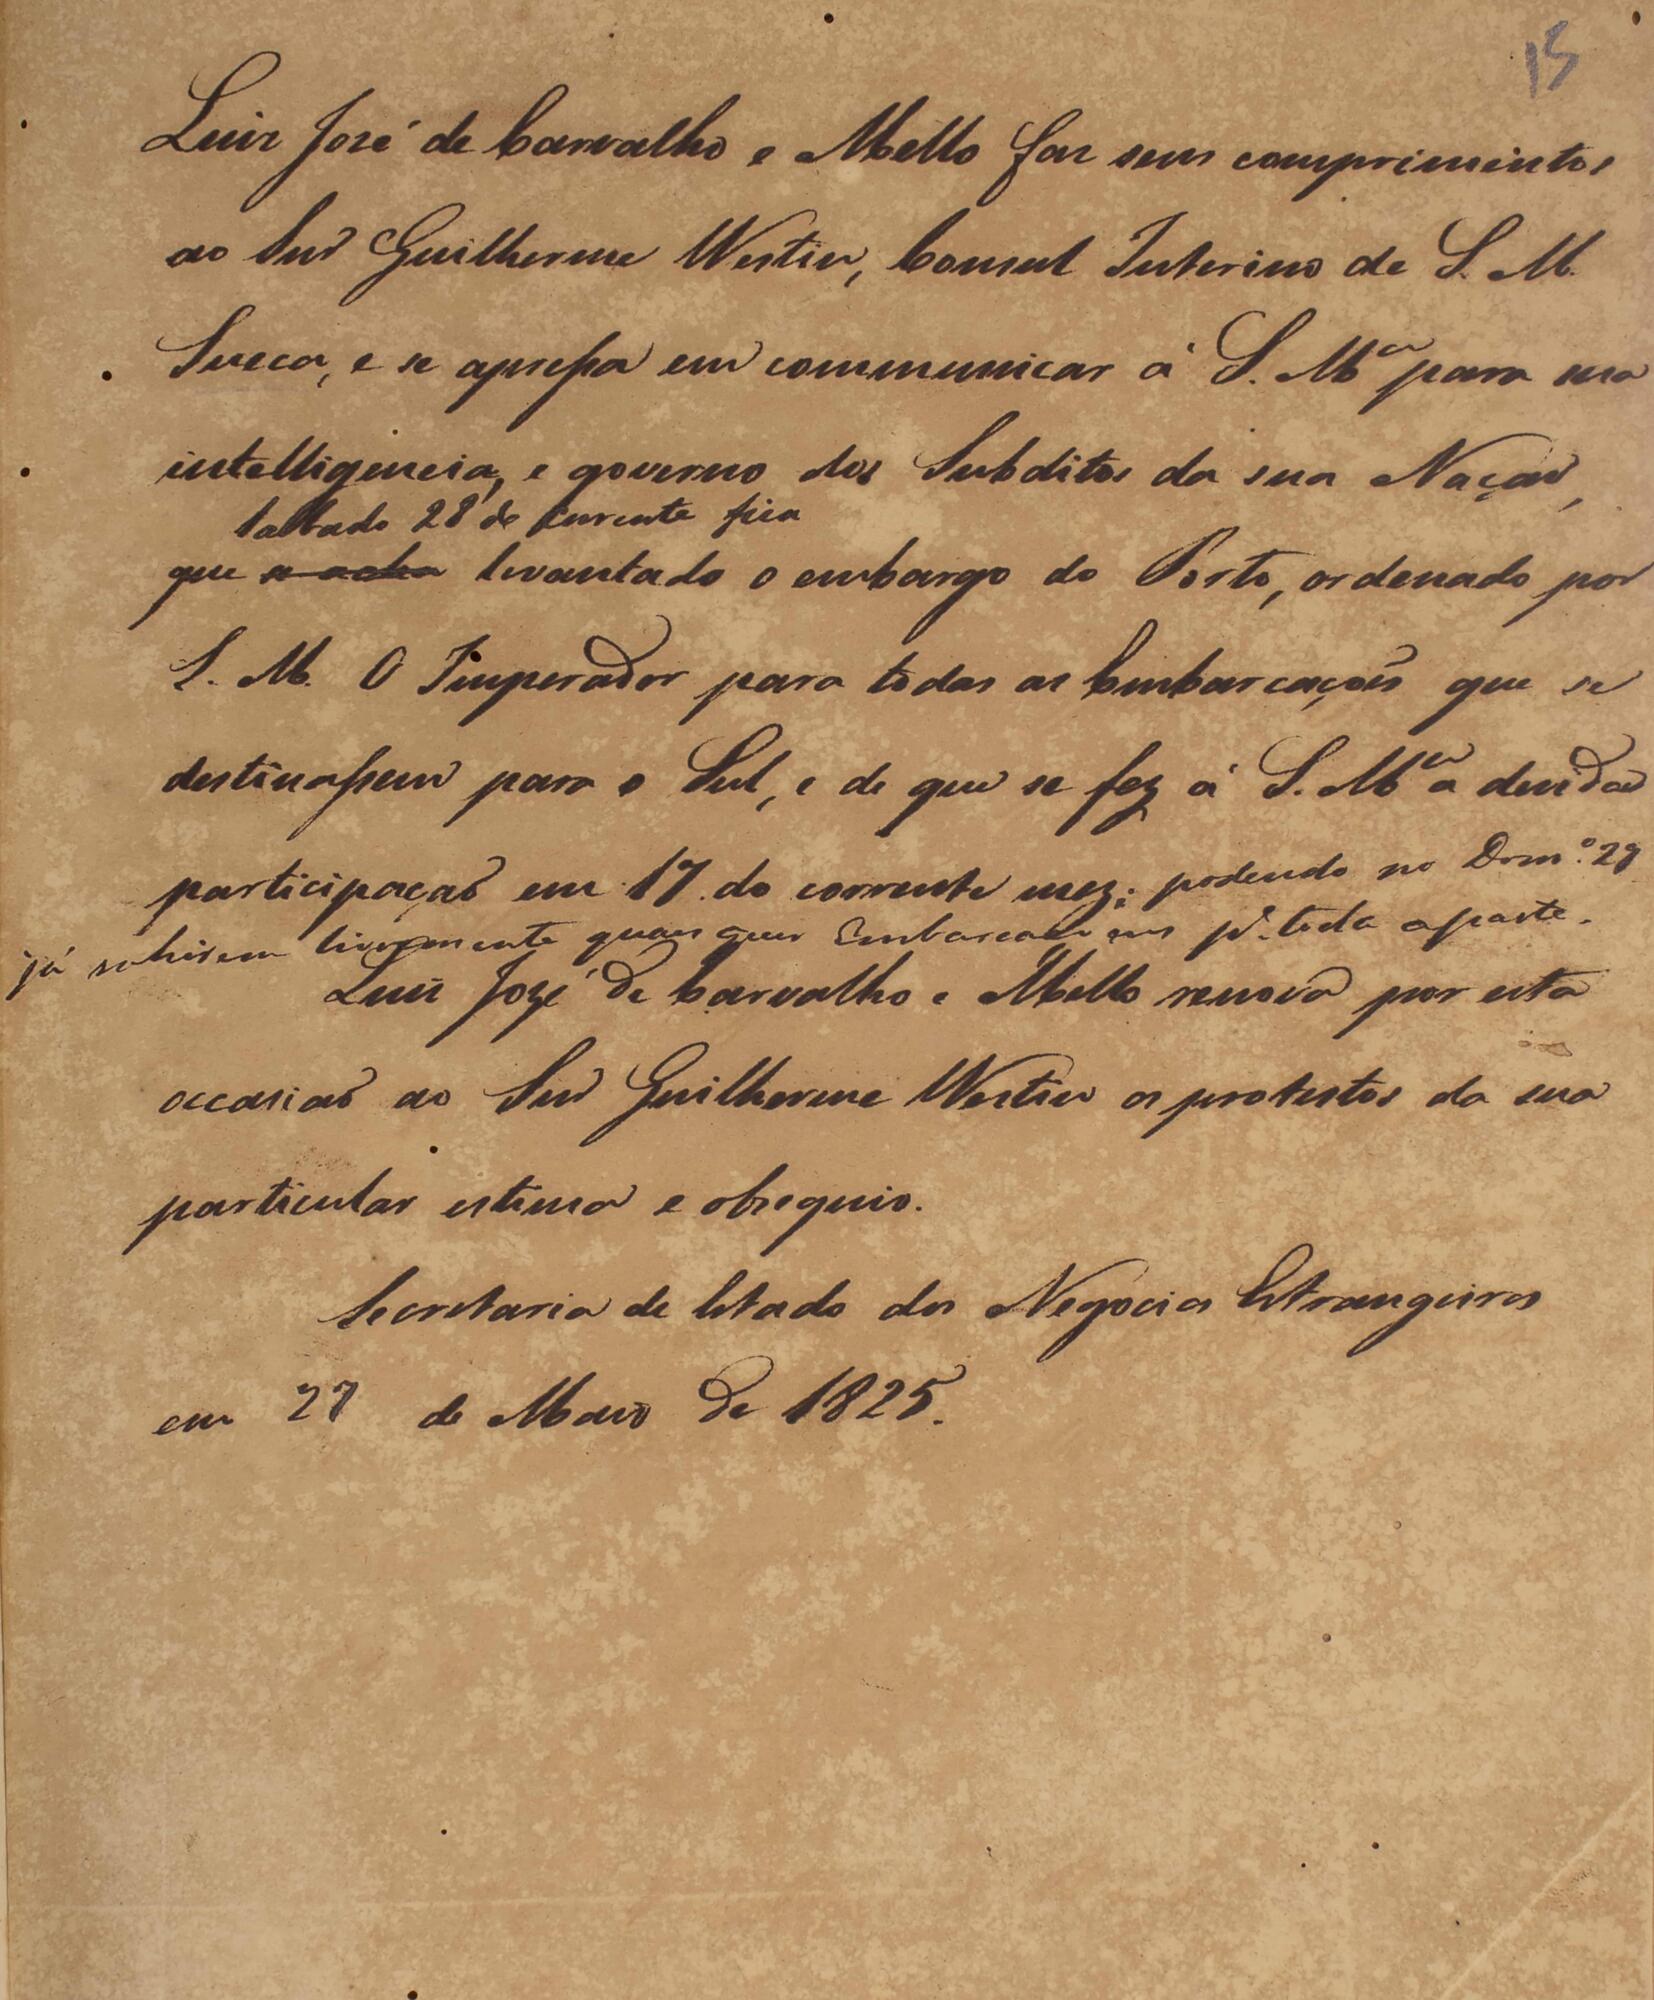 15
Luiz José de Carvalho e Mello faz seus comprimentos
ao Snr Guilherme Westin, Consul Interino de S. M.
Sueca, e se apressa em communicar á S. M.ce para sua
intelligencia, e governo dos Subditos da sua Nação,
Sabbado 28 do corrente fica
que se acha levantado o embargo do Porto, ordenado por
S. M. O Imperador para todas as Embarcações que se
destinassem para o Sul, e de que se fez á S. M.ce a devida
participação em 17 do corrente mez; podendo no Dom.º 29
já sahirem livremente quaesquer Embarcações p.ª toda a parte.
Luiz Jozé de Carvalho e Mello renova por esta
occasião ao Snr Guilherme Westin os protestos da sua
particular estima e obsequio.
Secretaria de Estado dos Negocios Estrangeiros
em 27 de Maio de 1825.